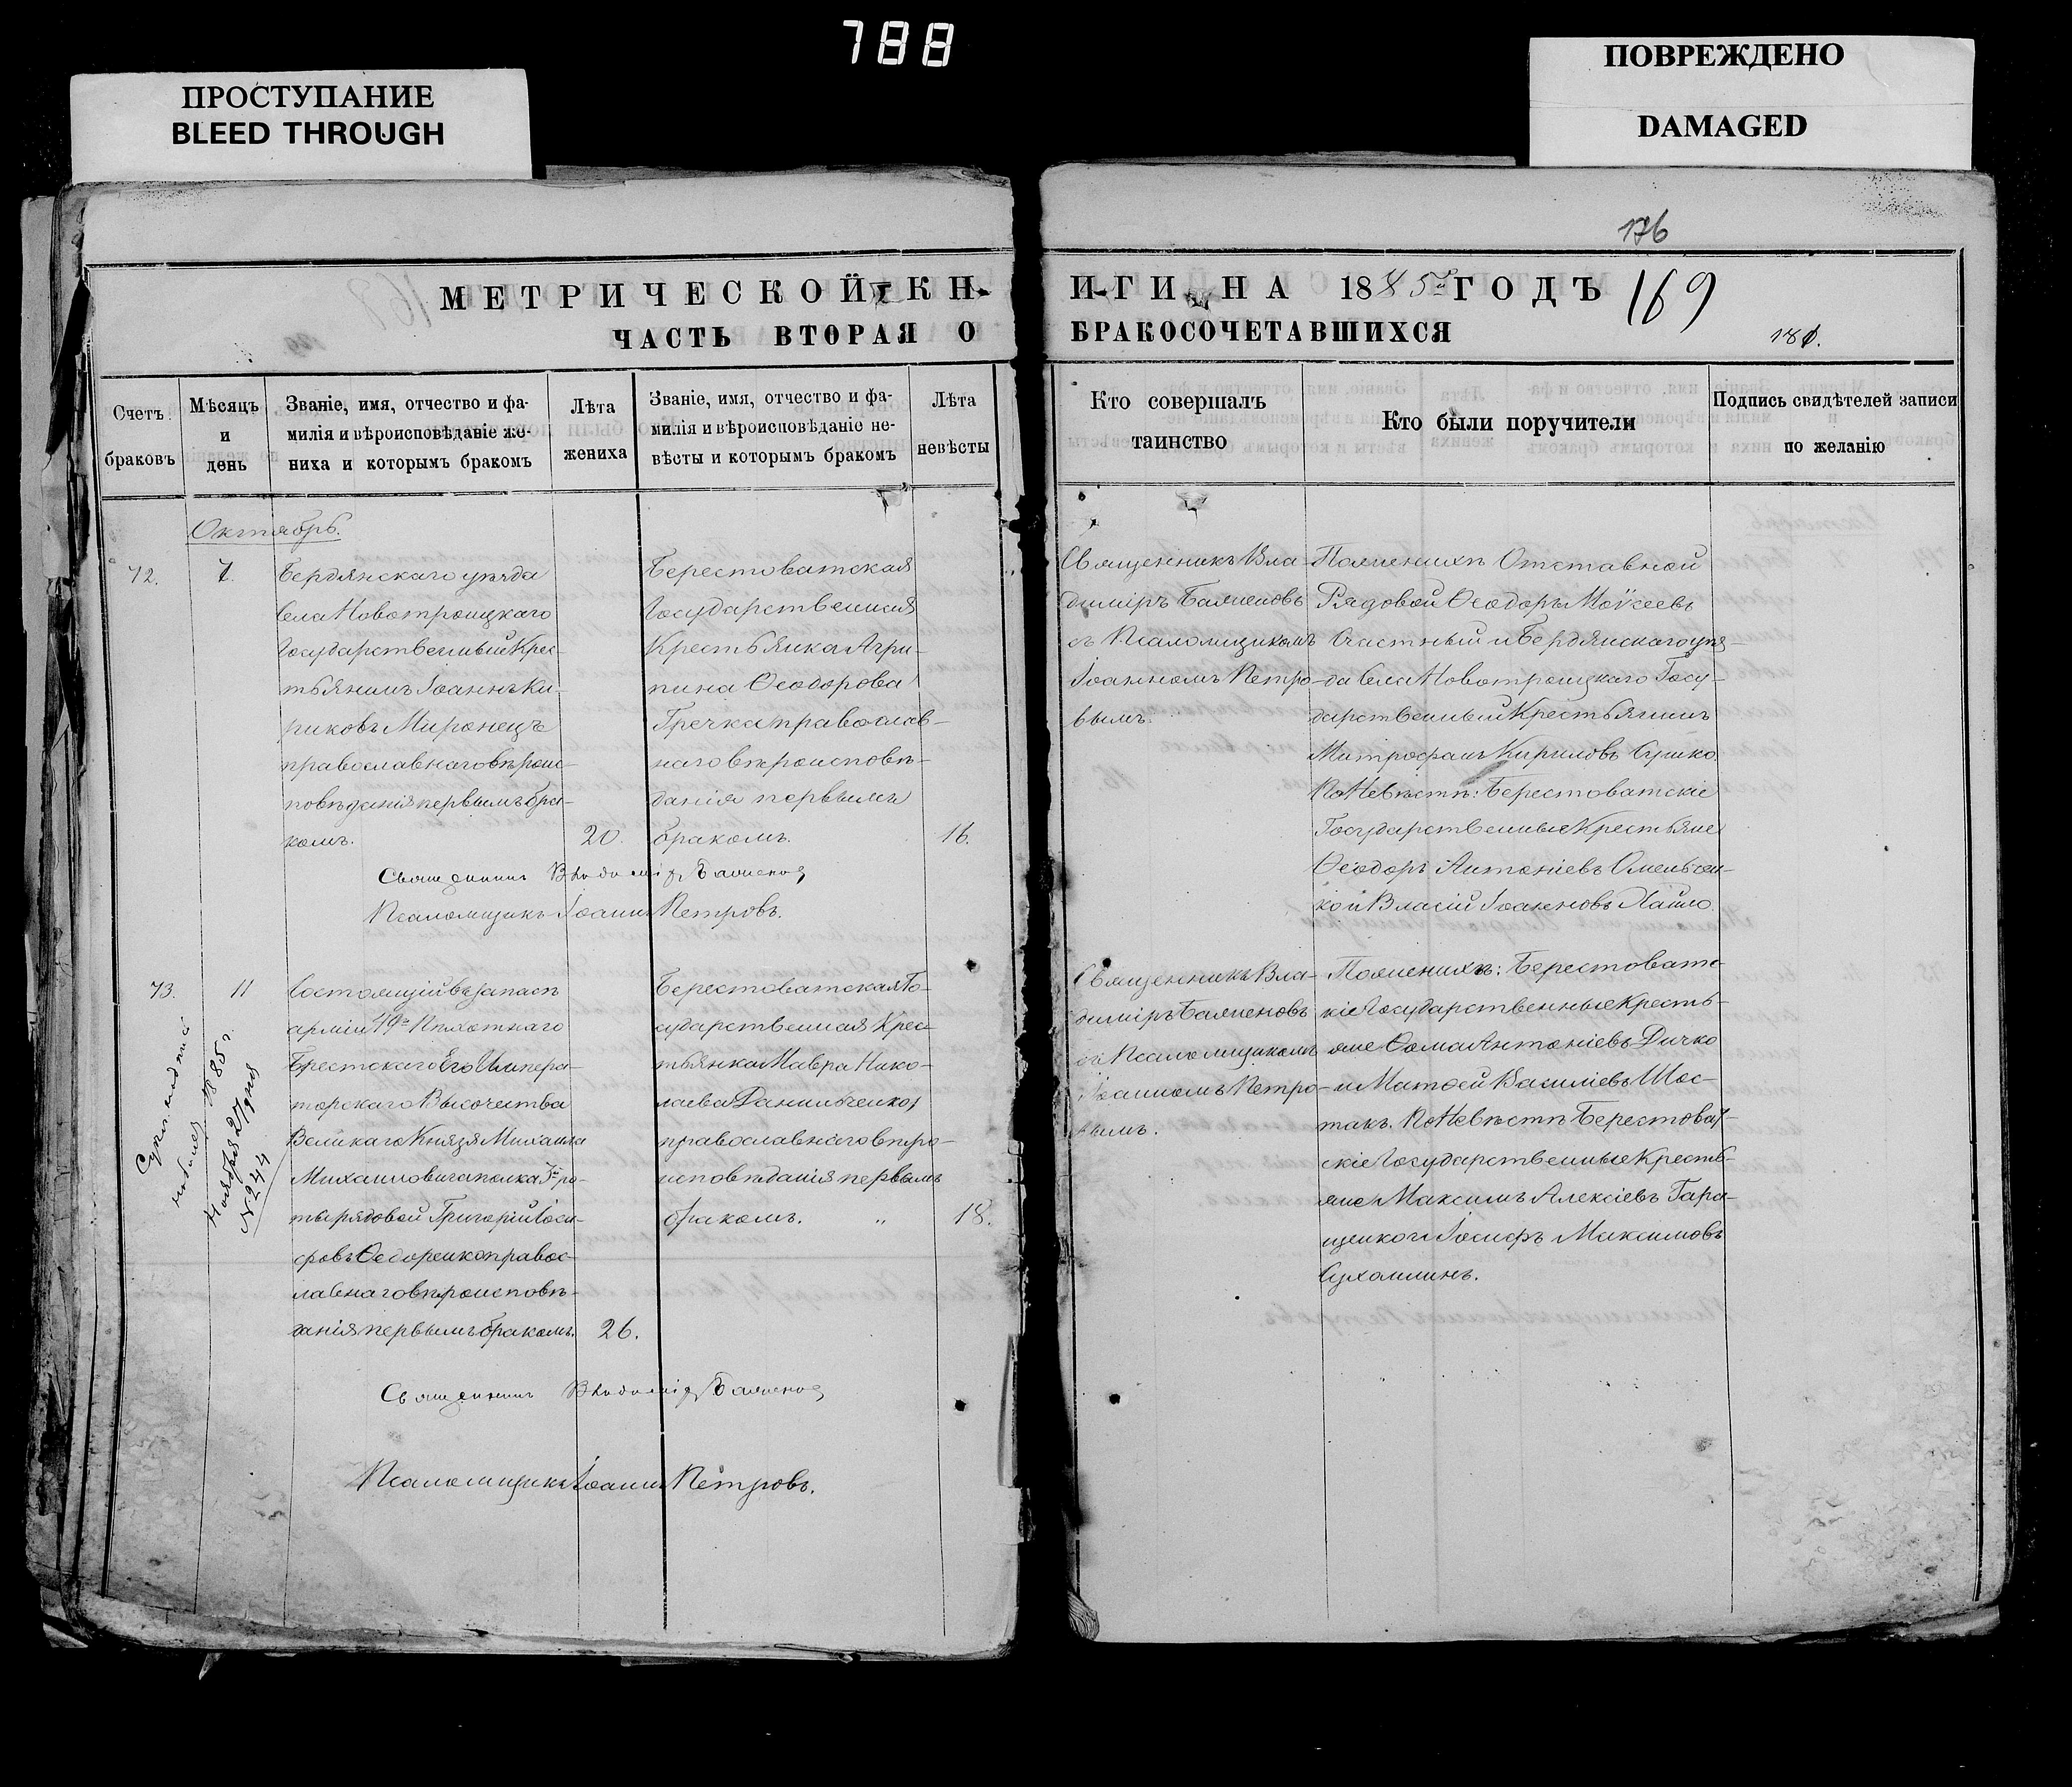 788
ПРОСТУПАНИЕ
BLEED THROUGH
ПОВРЕЖДЕНО
DAMAGED
176
МЕТРИЧЕСКОЙ КН
ИГИ НА 1885 ГОДЪ
169
ЧАСТЬ ВТОРАЯ О
БРАКОСОЧЕТАВШИХСЯ
Счетъ браковъ
Мѣсяцъ и день
Званіе, имя, отчество и фа-
милія и вѣроисповѣданіе же-
ниха и которымъ бракомъ
Лѣта жениха
Званіе, имя, отчество и фа-
милія и вѣроисповѣданіе не-
вѣсты и которымъ бракомъ
Лѣта невѣсты
Кто совершалъ
таинство
Кто были поручители
Подпись свидѣтелей записи
по желанію
Октябрь.
72.
Бердянскаго уѣзда
села Новотроицкаго
Государственный Крес-
тьянинъ Іоаннъ Ки-
риковъ Миронецъ
православнаго вѣроис-
повѣданія первымъ бра-
комъ.
20.
Берестоватская
Государственная
Крестьянка Агри-
пина Ѳеодорова
Гречка православ-
наго вѣроисповѣ-
данія первымъ
бракомъ.
16.
Священникъ Вла-
диміръ Баженовъ
съ Псаломщикомъ
Іоанномъ Петро-
вымъ.
По женихѣ Отставной
Рядовой Ѳеодоръ Моѵсеевъ
Счастный и Бердянскаго уѣз-
да села Новотроицкаго Госу-
дарственный Крестьянинъ
Митрофанъ Кириловъ Сушко.
По Невѣстѣ: Берестоватскіе
Государственные Крестьяне
Ѳеодоръ Антоніевъ Омельчен-
ко и Власій Іоанновъ
Священникъ Владиміръ Баженовъ
Псаломщикъ Іоаннъ Петровъ.
73.
11
1885 г.
Ноября 27 дня
№ 244
Состоящій въ запасѣ
арміи 49го Пѣхотнаго
Брестскаго Его Импера-
торскаго Высочества
Великаго Князя Михаила
Михаиловича полка ро-
ты рядовой Григорій Іоси-
фовъ Ѳедоренко правос-
лавнаго вѣроисповѣ-
данія первымъ бракомъ.
26.
Берестоватская Го-
сударственная Крес-
тьянка Мавра Нико-
лаева Данильченкова
православнаго вѣро-
исповѣданія первымъ
бракомъ. "
18.
Священникъ Вла-
диміръ Баженовъ
съ Псаломщикомъ
Іоанномъ Петро-
вымъ.
По женихѣ: Берестоватс-
кіе Государственные Кресть-
яне Ѳома Антоніевъ Дичко
и Матѳей Василіевъ Шос-
такъ. По Невѣстѣ Берестоват-
скіе Государственные Кресть-
яне Максимъ Алексіевъ Гара-
щенко и Іосифъ Максимовъ
Сухомлинъ.
Священникъ Владиміръ Баженовъ
Псаломщикъ Іоаннъ Петровъ.